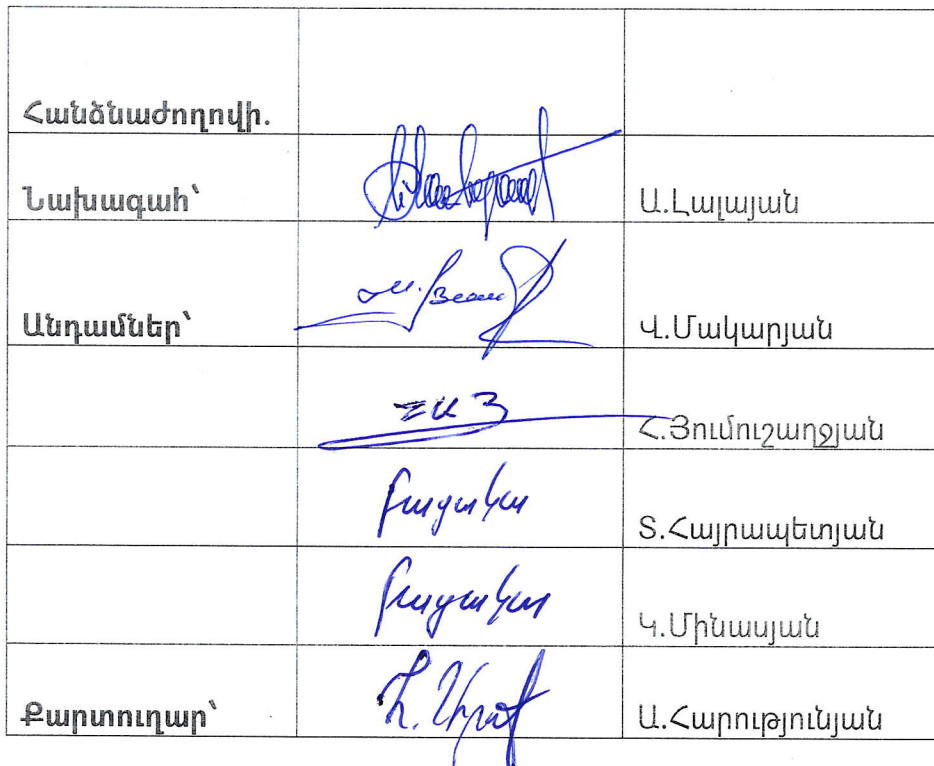 Հանձնաժողովի.
Նախագահ՝ Ա.Լալայան
Անդամներ՝ Վ.Մակարյան
Հ.Յումուշաղջյան
բացակա Տ.Հայրապետյան
բացակա Կ.Մինասյան
Քարտուղար՝ Ա.Հարությունյան